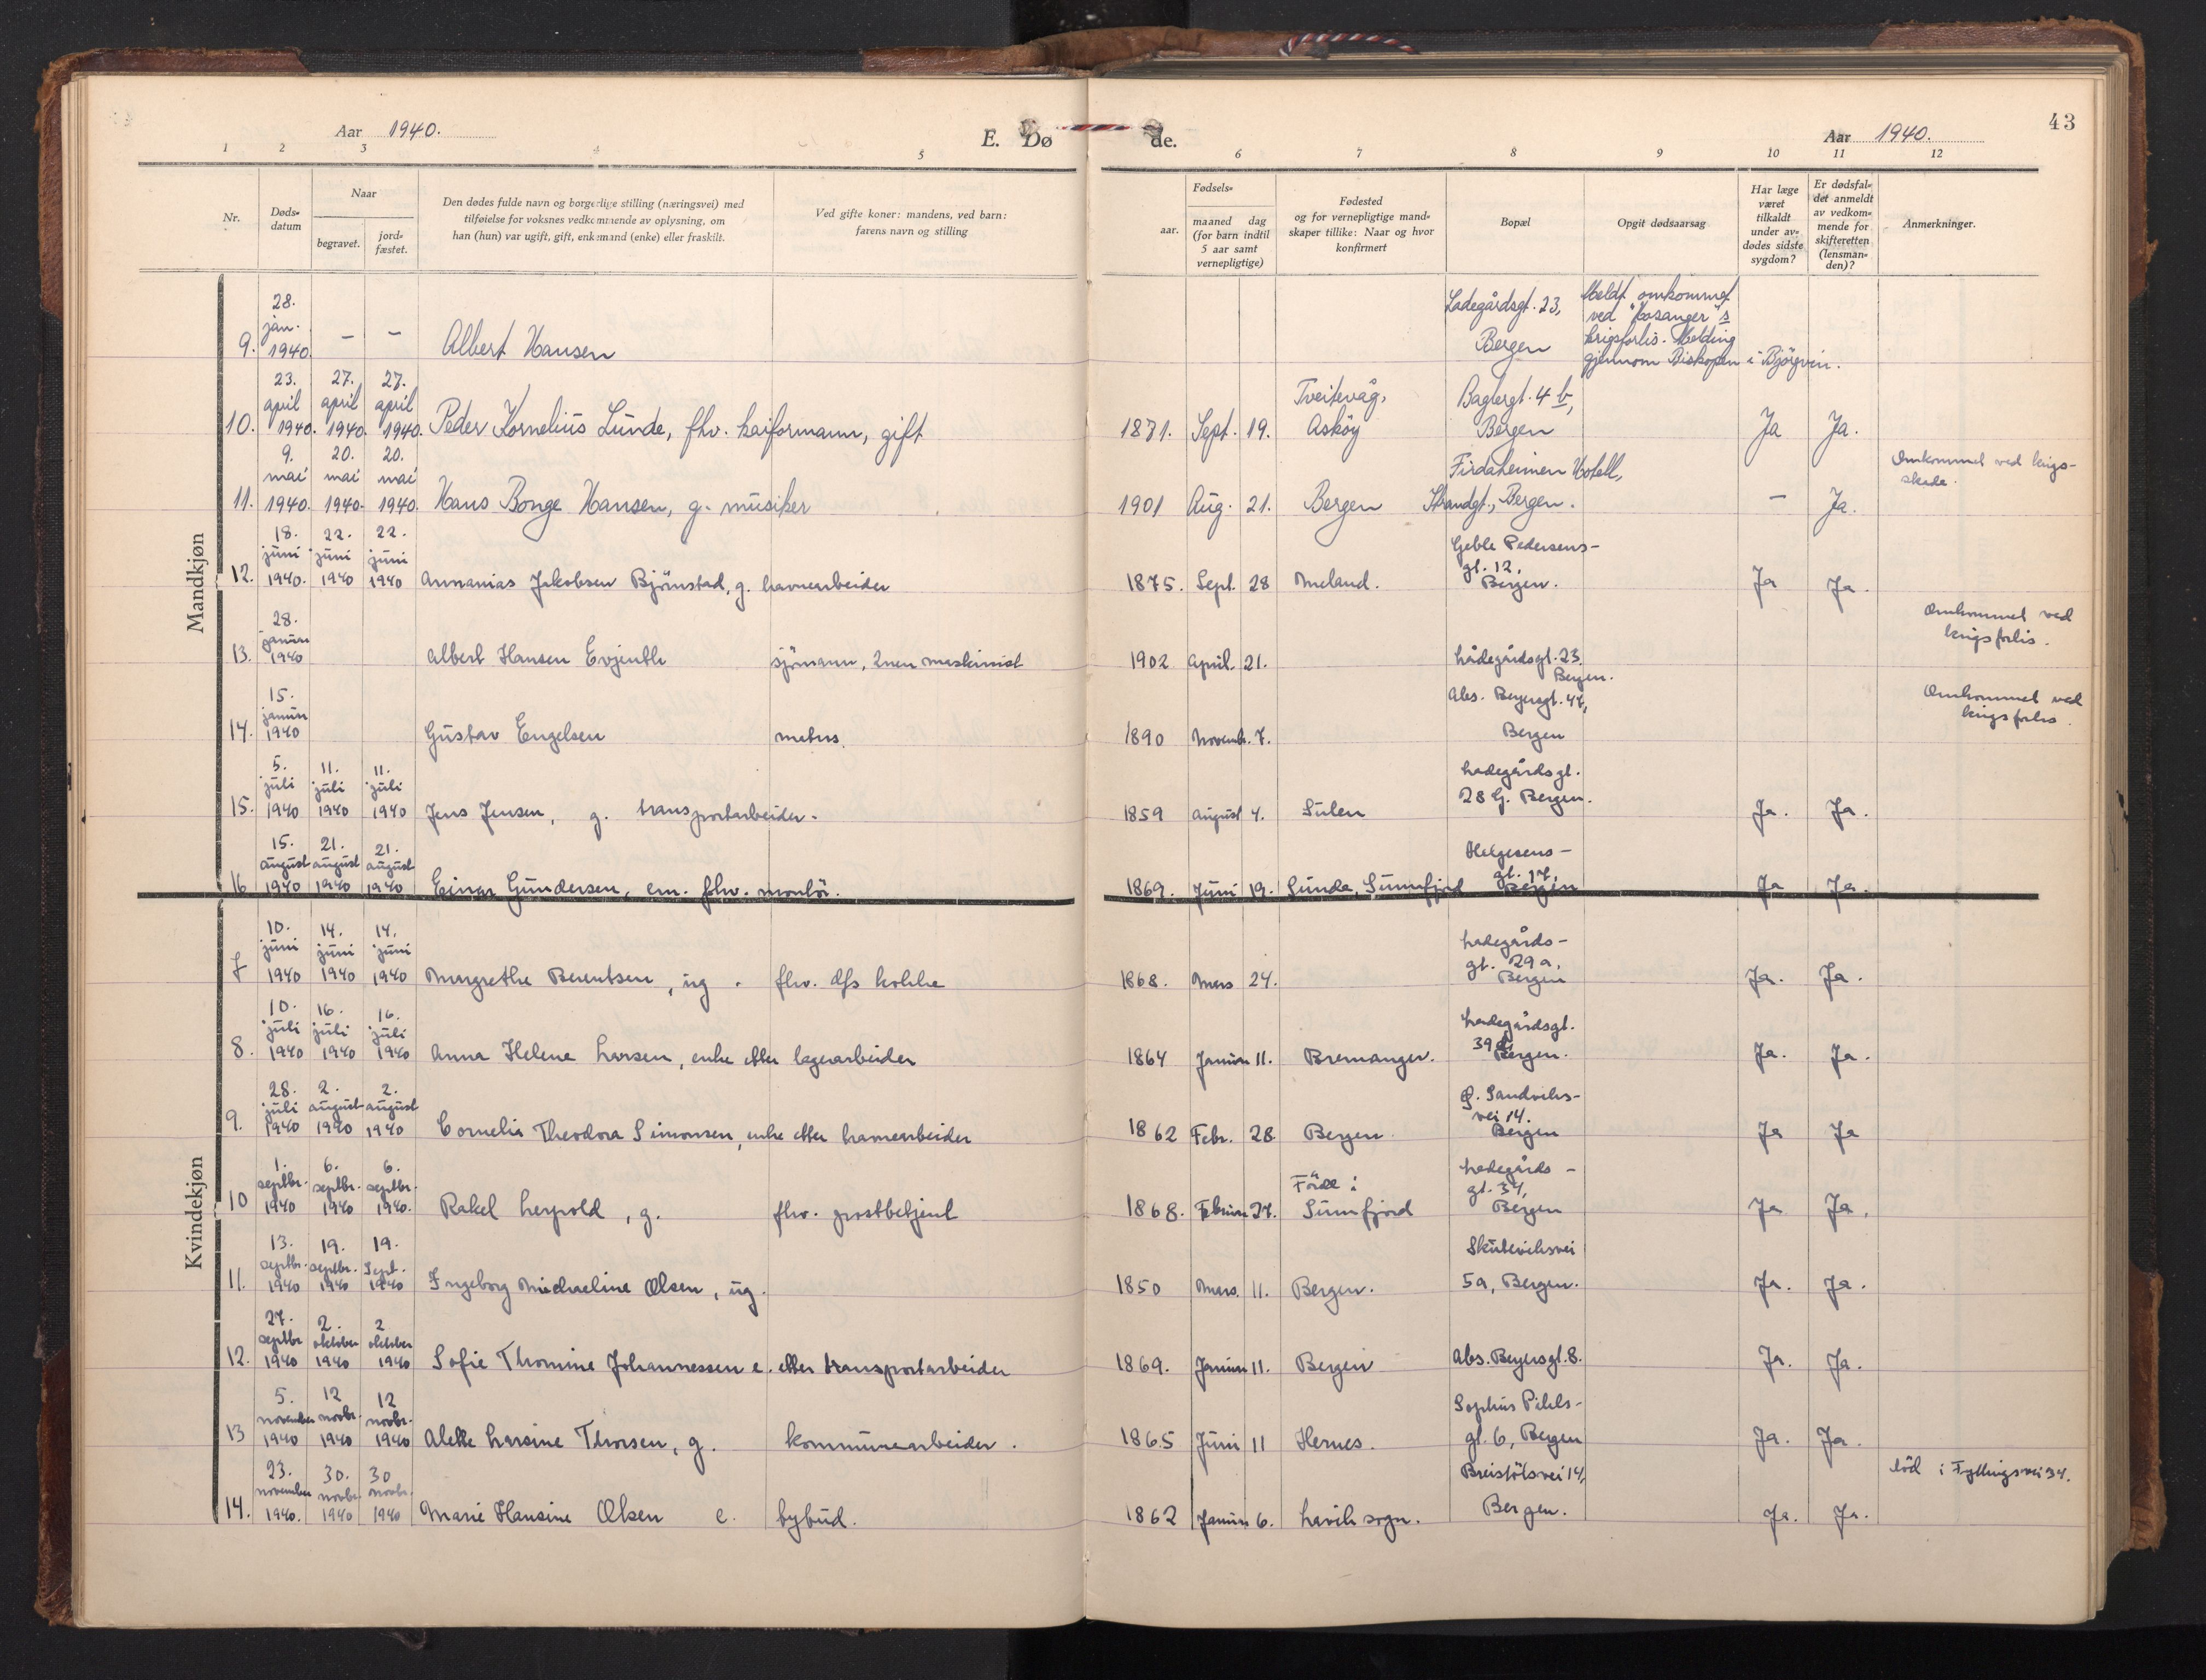 43
Aar 1940.
E. Dø de.
Aar 1940.
1 2 3 4 5 6 7 8 9 10 11 12
Nr.
Døds-
datum
Naar
begravet.
jord-
fæstet.
Den dødes fulde navn og borgerlige stilling (næringsvei) med
tilføielse for voksnes vedkommende av oplysning, om
han (hun) var ugift, gift, enkemand (enke) eller fraskilt.
Ved gifte koner: mandens, ved barn:
farens navn og stilling
Fødsels-
aar.
maaned dag
(for barn indtil
5 aar samt
vernepligtige)
Fødested
og for vernepligtige mand-
skaper tillike: Naar og hvor
konfirmert
Bopæl
Opgit dødsaarsag
Har læge
været
tilkaldt
under av-
dødes sidste
sygdom?
Er dødsfal-
det anmeldt
av vedkom-
mende for
skifteretten
(lensman-
den)?
Anmerkninger.
Mandkjøn
9. 28. jan. 1940 — — Albert Hansen Ladegårdsgt. 23, Bergen
Meldt omkommet
ved "Kosanger"s
krigsforlis. Melding
gjennom Biskopen i Bjørgvin.
10. 23. april 1940. 27. april 1940. 27. april 1940. Peder Kornelius Lunde, fhv. kaiformann, gift 1871. Sept. 19. Tveitevåg, Askøy Baglergt. 4 b, Bergen Ja Ja.
11. 9. mai 1940. 20. mai 1940. 20. mai 1940. Hans Bonge Hansen, g. musiker 1901 Aug. 21. Bergen Firdaheimen Hotell, Strandgt., Bergen. — Ja. Omkommet ved krigs-
skade.
12. 18. juni 1940. 22. juni 1940 22. juni 1940 Annanias Jakobsen Bjørnstad, g. havnearbeider 1875. Sept. 28 Meland. Geble Pedersens-
gt. 12, Bergen. Ja Ja.
13. 28. januar 1940 Albert Hansen Evjenth sjømann, 2nen maskinist 1902 April. 21. Ladegårdsgt. 23. Bergen. Omkommet ved
krigsforlis.
14. 15. januar 1940 Gustav Engelsen matros. 1890 Novemb. 7. Abs. Beyersgt. 47, Bergen Omkommet ved
krigsforlis.
15. 5. juli 1940 11. juli 1940 11. juli 1940 Jens Jensen, g. transportarbeider. 1859 August 4. Sulen Ladegårdsgt.
28 G. Bergen. Ja. Ja.
16 15. august 1940 21. august 1940 21. august 1940 Einar Gundersen, em. fhv. montör. 1869. Juni 19. Sunde, Sunnfjord Helgesens-
gt. 17, Bergen Ja Ja.
Kvindekjøn
10. juni 1940 14. juni 1940 14. juni 1940 Margrethe Berentsen, ug. fhv. dfs kokke 1868. Mars 24. Ladegårds-
gt. 29a, Bergen Ja. Ja.
8. 10. juli 1940 16. juli 1940 16. juli 1940 Anna Helene Larsen, enke etter lagerarbeider 1864 Januar 11. Bremanger. Ladegårdsgt.
39 Bergen. Ja. Ja.
9. 28. juli 1940 2. august 1940 2. august 1940 Cornelia Theodora Simonsen, enke etter havnearbeider 1862 Febr. 28. Bergen Ø. Sandviks-
vei 14. Bergen Ja Ja
10 1. septbr. 1940 6. septbr. 1940 6. septbr. 1940. Rakel Leypold, g. fhv. postbetjent 1868. Februar 27. Förde i Sunnfjord Ladegårds-
gt. 34, Bergen Ja Ja.
11. 13. septbr. 1940 19. septbr. 1940 19. Sept. 1940 Ingeborg Michaeline Olsen, ug. 1850 Mars. 11. Bergen. Skuteviksvei
5a, Bergen. Ja. Ja.
12. 27. septbr 1940 2. oktober 1940 2 oktober 1940 Sofie Thomine Johannessen e. etter transportarbeider 1869. Januar 11. Bergen Abs. Beyersgt. 8. Ja. Ja.
13 5. november 1940 12 novbr. 1940 12 novbr. 1940 Alette Larsine Thorsen, g. kommunearbeider. 1865 Juni 11 Hernes. Sophus Pihls-
gt. 6, Bergen Ja. Ja.
14. 23. november 1940. 30. novbr 1940 30 novbr. 1940 Marie Hansine Olsen e. bybud. 1862 Januar 6. Lavik sogn. Breistölsvei 14, Bergen. Ja. Ja. död i Fyllingsvei 34.